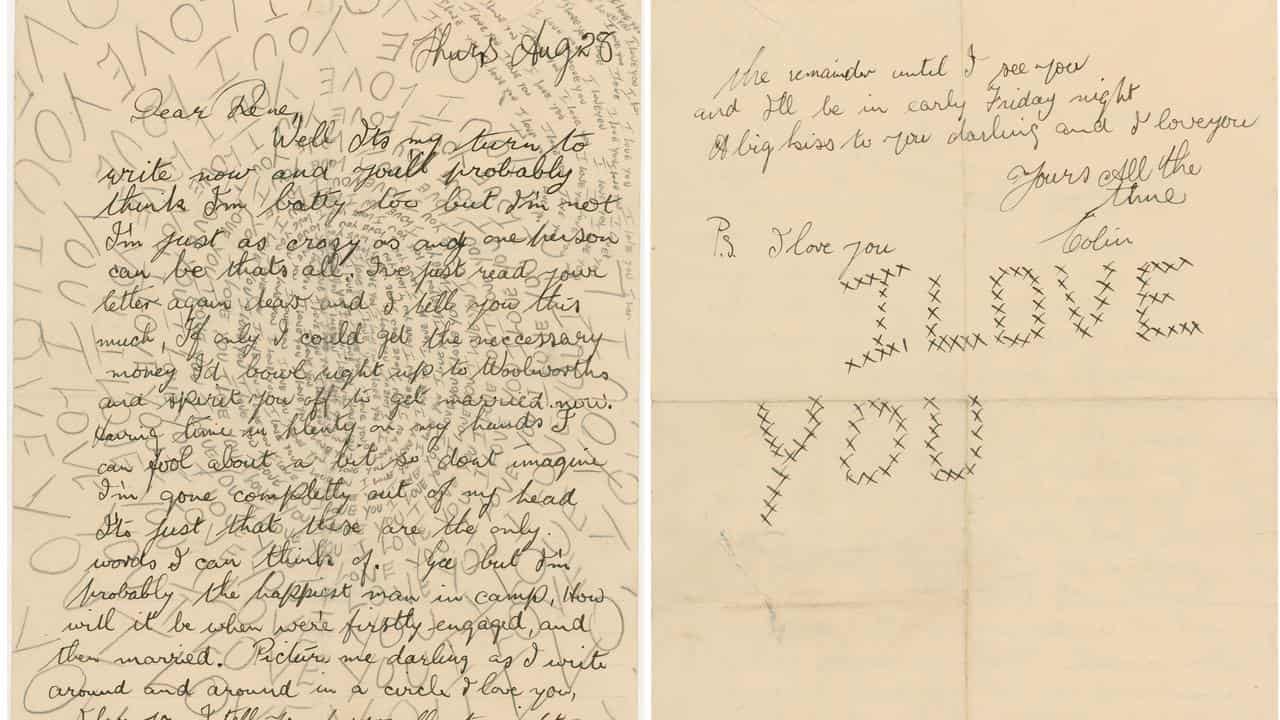 Thurs Aug 28
Dear Rene,
Well Its my turn to
write now and you'll probably
think I'm batty too but I'm not
I'm just as crazy as any one person
can be thats all. I've just read your
letter again dear and I tell you this
much, If only I could get the neccessary
money I'd bowl right up to Woolworths
and spirit you off to get married now.
Having time in plenty on my hands I
can fool about a bit so dont imagine
I'm gone completly out of my head
Its just that these are the only
words I can think of. Gee but I'm
probably the happiest man in camp, How
will it be when we're firstly engaged, and
then married. Picture me darling as I write
around and around in a circle I love you,
the remainder until I see you
and I'll be in early Friday night
A big kiss to you darling and I love you
Yours All the
time
Colin
P.S. I love you
I LOVE
YOU